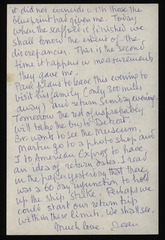 it did not coincide with those the
blueprint had given me. Today
when the scaffold is finished we
shall know the extent of the
discrepancies. This is the second
time it happens w measurements
they gave me.
Paul plans to leave this evening to
visit his family (only 300 miles
away) and return Sunday evening.
Tomorrow the rest of us probably
will take the bus to Detroit.
Sr. wants to see the Museum,
Martin go to a photo shop, and
I to American Export to have
an idea of return dates. I read
in the paper yesterday that there
was a 60 day injunction to hold
up the ship strike. Perhaps we
could start our return trip
within these limits. We shall see.
Much love,